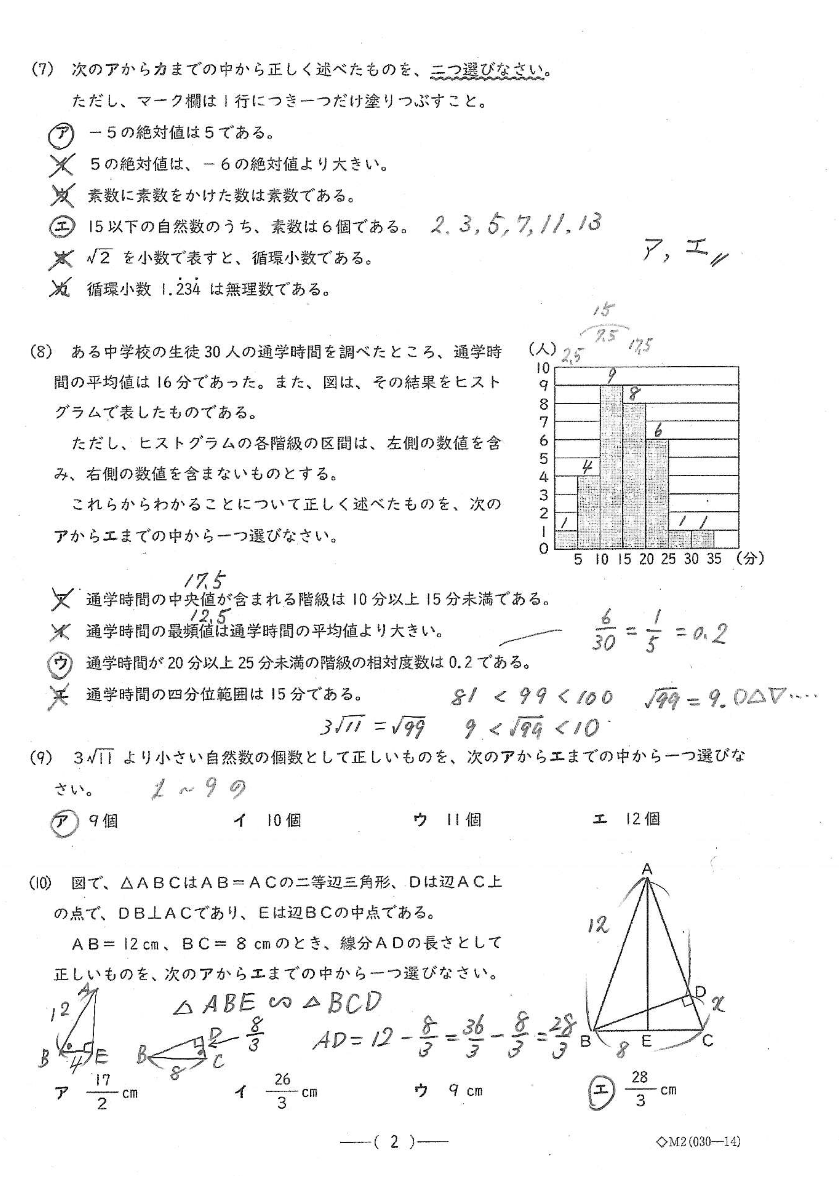 (7) 次のアからカまでの中から正しく述べたものを、二つ選びなさい。
ただし、マーク欄は1行につき一つだけ塗りつぶすこと。
ア －5の絶対値は5である。
イ 5の絶対値は、－6の絶対値より大きい。
ウ 素数に素数をかけた数は素数である。
エ 15以下の自然数のうち、素数は6個である。 2, 3, 5, 7, 11, 13
ア, エ
オ √2 を小数で表すと、循環小数である。
カ 循環小数 1.2̇34̇ は無理数である。
(8) ある中学校の生徒30人の通学時間を調べたところ、通学時
間の平均値は16分であった。また、図は、その結果をヒスト
グラムで表したものである。
ただし、ヒストグラムの各階級の区間は、左側の数値を含
み、右側の数値を含まないものとする。
これらからわかることについて正しく述べたものを、次の
アからエまでの中から一つ選びなさい。
15
7.5
2.5 17.5
(人)
10
9
8
7
6
5
4
3
2
1
0
1 4 9 8 6 1 1
5 10 15 20 25 30 35 (分)
17.5
ア 通学時間の中央値が含まれる階級は10分以上15分未満である。
12.5
イ 通学時間の最頻値は通学時間の平均値より大きい。
6/30 = 1/5 = 0.2
ウ 通学時間が20分以上25分未満の階級の相対度数は0.2である。
エ 通学時間の四分位範囲は15分である。
81 < 99 < 100 √99 = 9.0△▽‥‥
3√11 = √99 9 < √99 < 10
(9) 3√11 より小さい自然数の個数として正しいものを、次のアからエまでの中から一つ選びな
さい。 1 ～ 9 の
ア 9個 イ 10個 ウ 11個 エ 12個
(10) 図で、△ABCはAB＝ACの二等辺三角形、Dは辺AC上
の点で、DB⊥ACであり、Eは辺BCの中点である。
AB＝12cm、BC＝8cmのとき、線分ADの長さとして
正しいものを、次のアからエまでの中から一つ選びなさい。
A
12
D
x
B E C
8
△ABE ∽ △BCD
A
12
B 4 E
B 8 C D 8/3
AD = 12 - 8/3 = 36/3 - 8/3 = 28/3
ア 17/2 cm イ 26/3 cm ウ 9 cm エ 28/3 cm
—( 2 )—
◇M2(030—14)